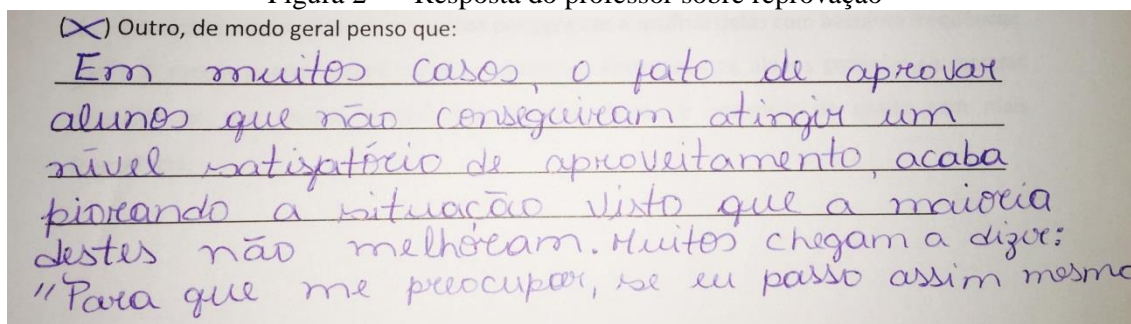 Figura 2 Resposta do professor sobre reprovação
(X) Outro, de modo geral penso que:
Em muitos casos, o fato de aprovar
alunos que não conseguiram atingir um
nível satisfatório de aproveitamento, acaba
piorando a situação visto que a maioria
destes não melhoram. Muitos chegam a dizer:
"Para que me preocupar, se eu passo assim mesmo